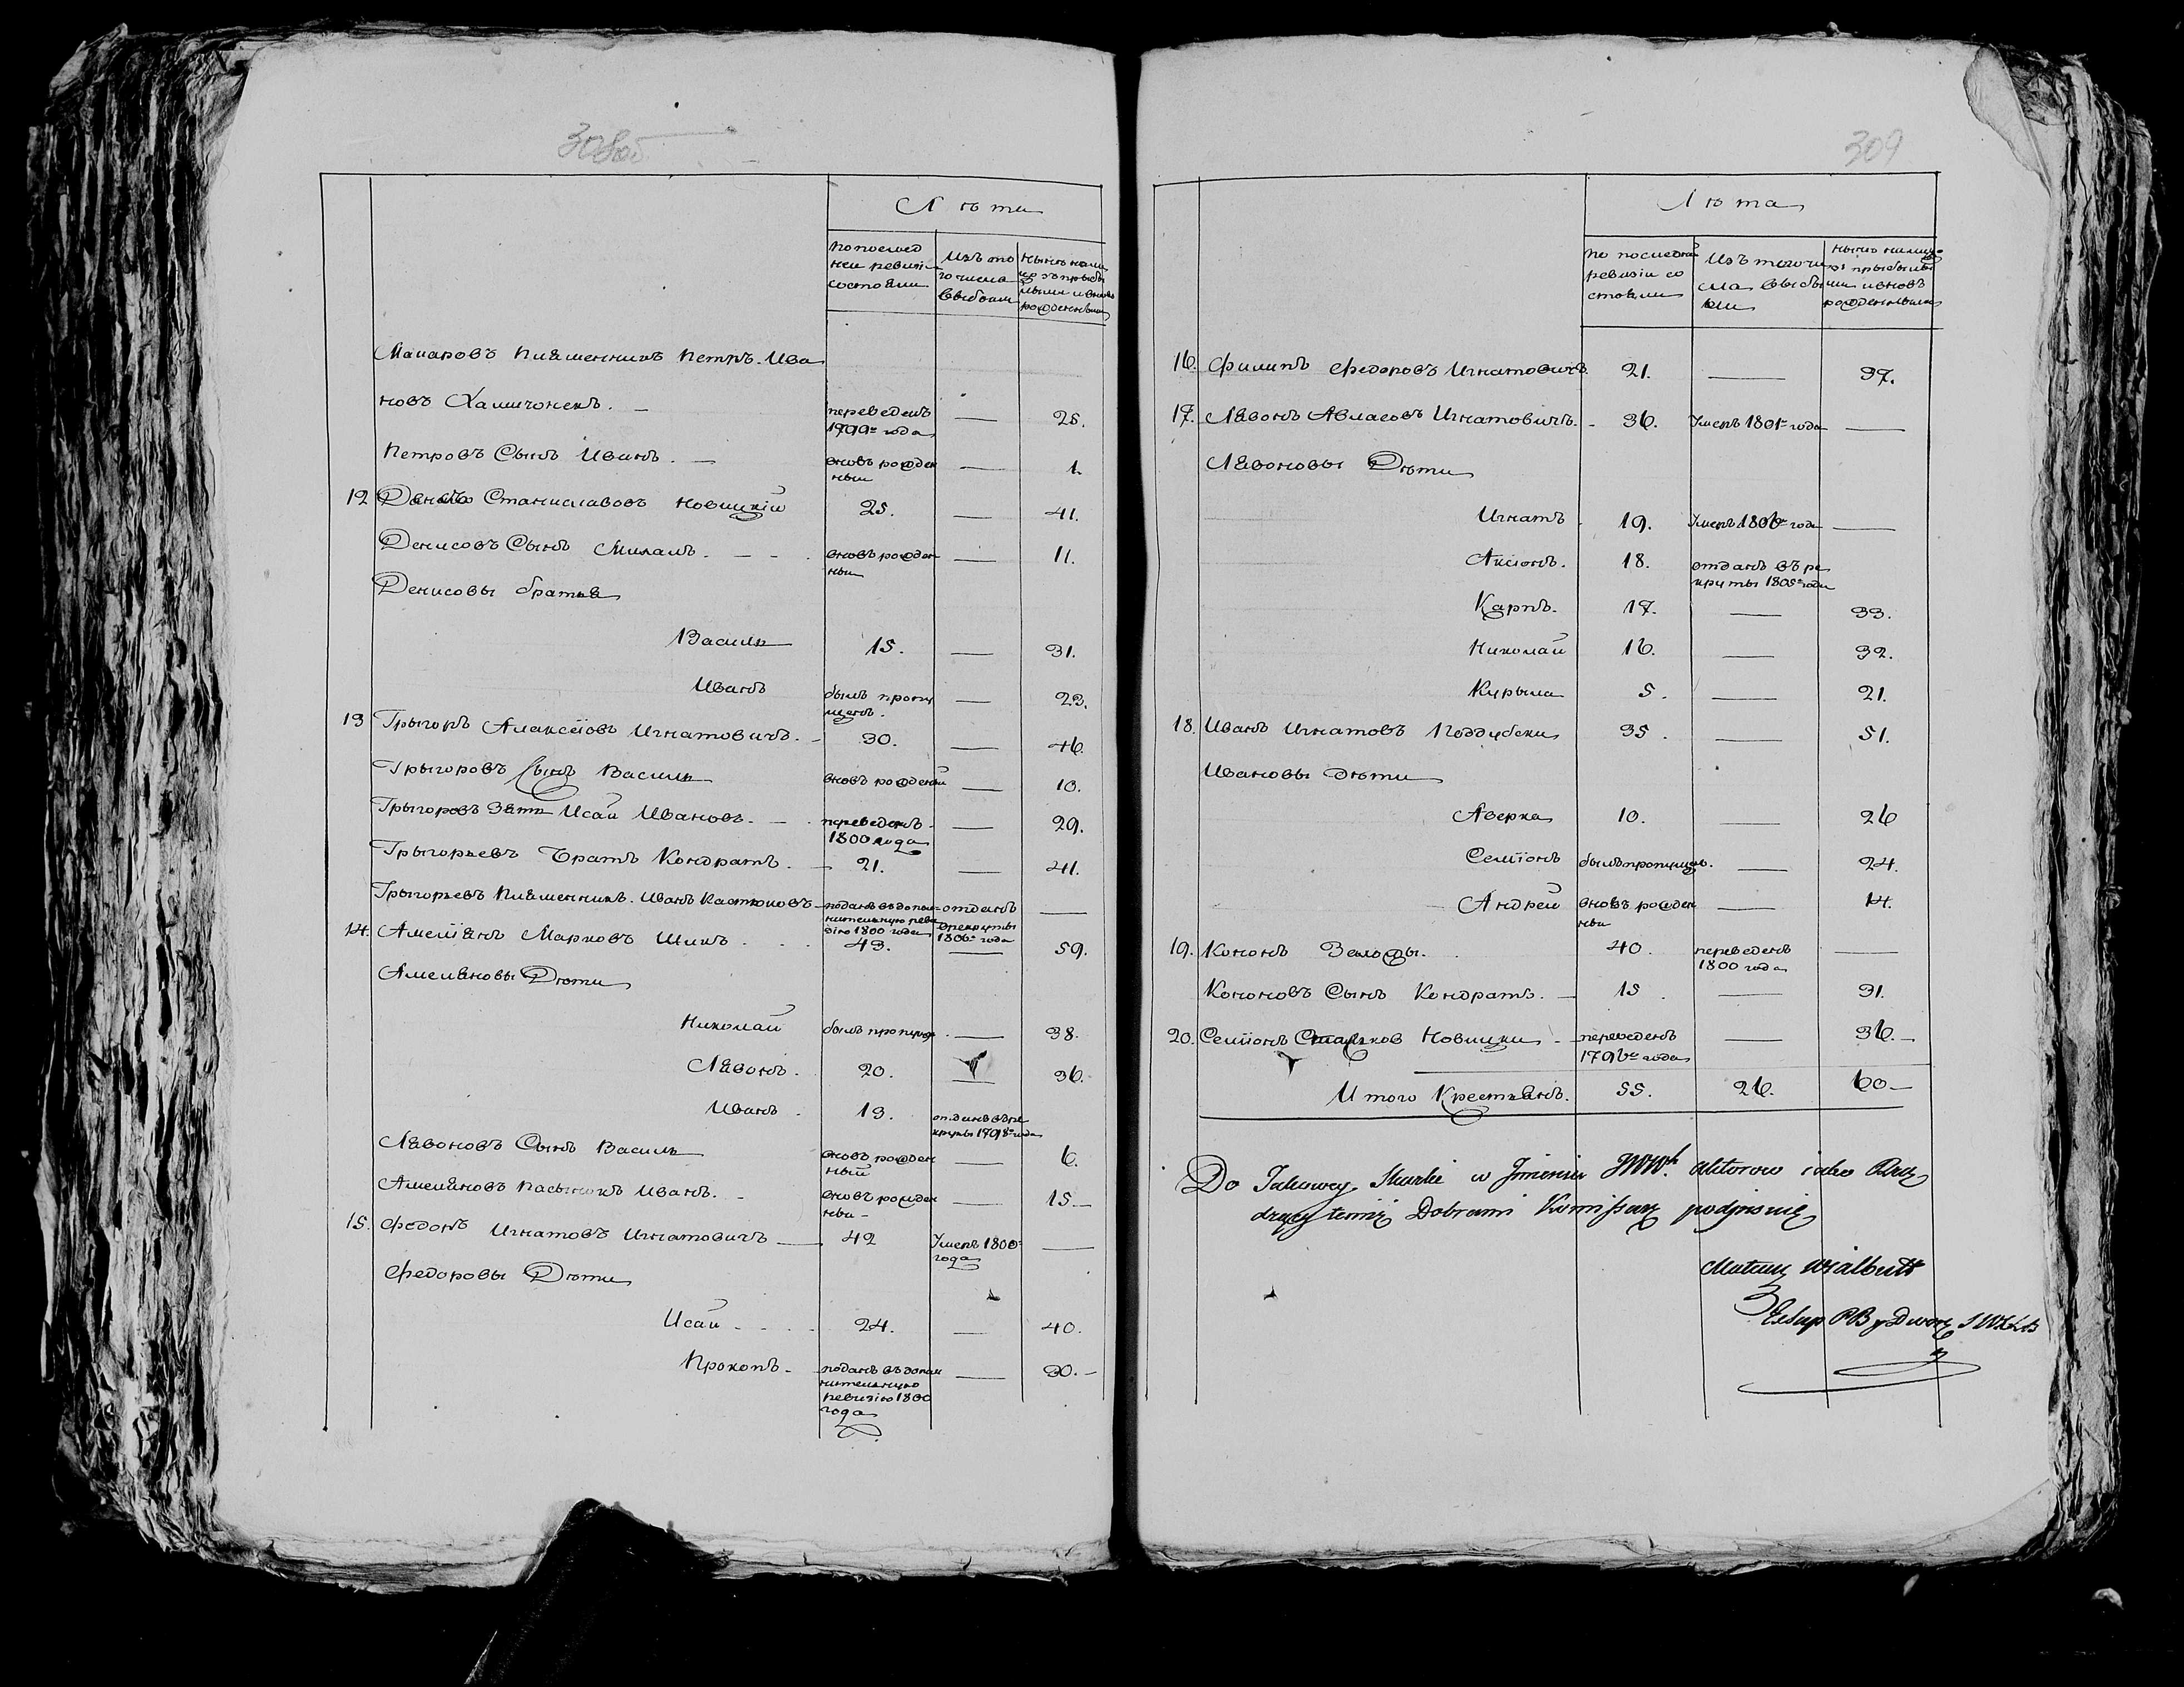 308об
Лѣта
По послед
ней ревизіи
состояли
Изъ то
го числа
выбыли
Нынѣ нали
цо съ прыбы
лыми и вновь
рожденными
Макаровъ племенникъ Петръ Ива
новъ Халимонекъ. — переведенъ 1799го года — 25.
Петровъ Сынъ Иванъ. — вновь рожден
ный — 1.
12 Денисъ Станиславовъ Новицкій 25. — 41.
Денисовъ Сынъ Михалъ. — вновь рожден
ный — 11.
Денисовы братья
Василь 15. — 31.
Иванъ былъ пропу
щенъ. — 29.
13 Грыгоръ Алаксѣіовъ Игнатовичъ. 30. — 46.
Грыгоровъ Сынъ Василь вновь рожденый — 10.
Грыгоровъ Зять Исай Ивановъ. — переведенъ
1800 года — 29.
Грыгорьевъ Братъ Кондратъ. — 21. — 41.
Грыгорьевъ племенникъ. Иванъ Кастюковъ — поданъ въ допол
нительную реви
зію 1800 года отданъ
в рекруты
1806го года —
14. Амеліянъ Марковъ Шикъ 43. — 59.
Амеляновы Дѣти
Николай былъ пропущ. — 38.
Лявонъ. 20. — 36.
Иванъ. 13. отданъ въ ре
круты 1798го года
Лявоновъ Сынъ Василь вновь рожден
ный — 6.
Амеляновъ пасынокъ Иванъ. вновь рожден
ный — 15 —
15. Федоръ Игнатовъ Игнатовичъ — 42 Умеръ 1800го
года —
Федоровы Дѣти
Исай 24. — 40.
Прокопъ — поданъ въ допол
нительную
ревизію 1800
года — 30. —
309
Лѣта
По последней
ревизіи со
стояли
Изъ того чи
сла выбы
ли
Нынѣ налицо
съ прыбылы
ми и вновь
рожденными
16. Филипъ Федоровъ Игнатовичъ. 21. — 37.
17. Лявонъ Авласовъ Игнатовичъ. 36. Умеръ 1801го года —
Лявоновы Дѣти
Игнатъ 19. Умеръ 1806го года —
Аксіонъ. 18. отданъ въ ре
круты 1805го года
Карпъ. 17. — 33.
Николай 16. — 32.
Курыла 5. — 21.
18. Иванъ Игнатовъ Поддубски 35. — 51.
Ивановы дѣти
Аверка 10. — 26
Семіонъ былъ пропущ. — 24.
Андрей вновь рожден
ны — 14.
19. Кононъ 40. переведенъ
1800 года —
Кононовъ Сынъ Кондратъ. — 15. — 31.
20. Семіонъ Новицки — переведенъ
1796го года — 36. —
Итого Крестьянъ. 55. 26. 60 —
Do Takowey Skazki w Jmieniu JWWch Aktorow iako Rzą
dzący temiż Dobrami Kommissarz podpisuię